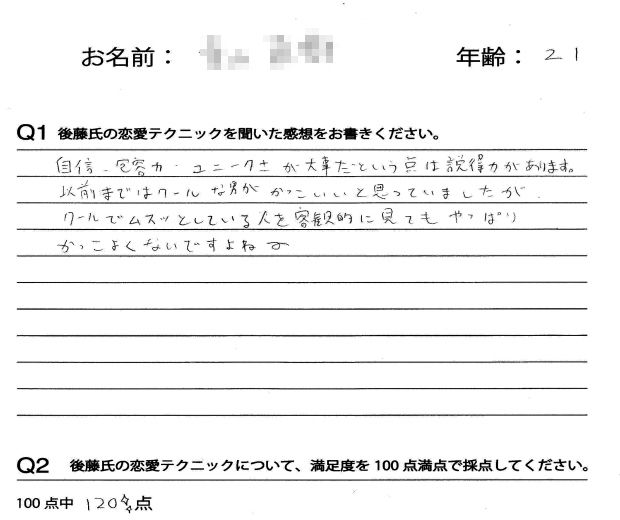 お名前： 年齢： 21
Q1 後藤氏の恋愛テクニックを聞いた感想をお書きください。
自信、包容力・ユニークさが大事だという点は説得力があります。
以前まではクールな男がかっこいいと思っていましたが、
クールでムスッとしている人を客観的に見てもやっぱり
かっこよくないですよね
Q2 後藤氏の恋愛テクニックについて、満足度を100点満点で採点してください。
100点中 120点